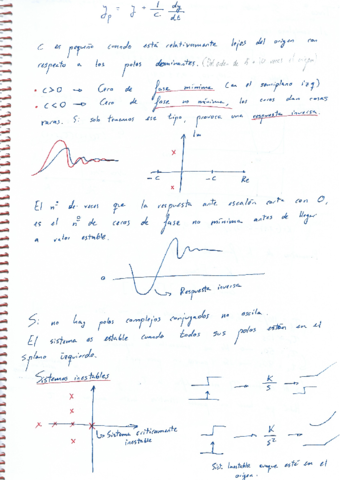 yp = y = 1/c dy/dt
C es pequeño cuando está relativamente lejos del origen con
respecto a los polos dominantes.
• c>0 → Cero de fase mínima (en el semiplano izq)
• c<0 → Cero de fase no mínima, los ceros dan cosas
raras. Si solo tenemos ese tipo, provoca una respuesta inversa.
Im
-C
-C
Re
El nº de veces que la respuesta ante escalón corta con 0,
es el nº de ceros de fase no mínima antes de llegar
a valor estable.
0
Respuesta inversa
Si no hay polos complejos conjugados no oscila.
El sistema es estable cuando todos sus polos están en el
splano izquierdo.
Sistemas inestables
K/S
Sistema críticamente
inestable
K/S²
Sist. inestable aunque esté en el
origen.